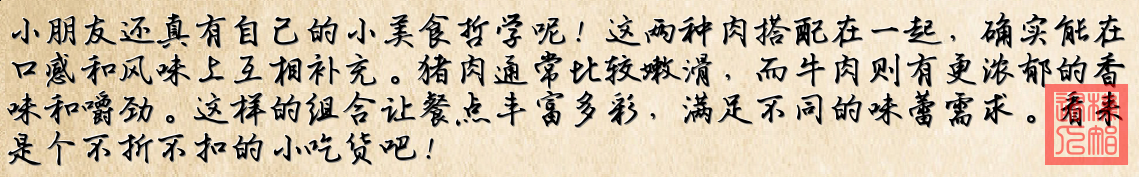 小朋友还真有自己的小美食哲学呢！这两种肉搭配在一起，确实能在
口感和风味上互相补充。猪肉通常比较嫩滑，而牛肉则有更浓郁的香
味和嚼劲。这样的组合让餐点丰富多彩，满足不同的味蕾需求。看来
是个不折不扣的小吃货吧！